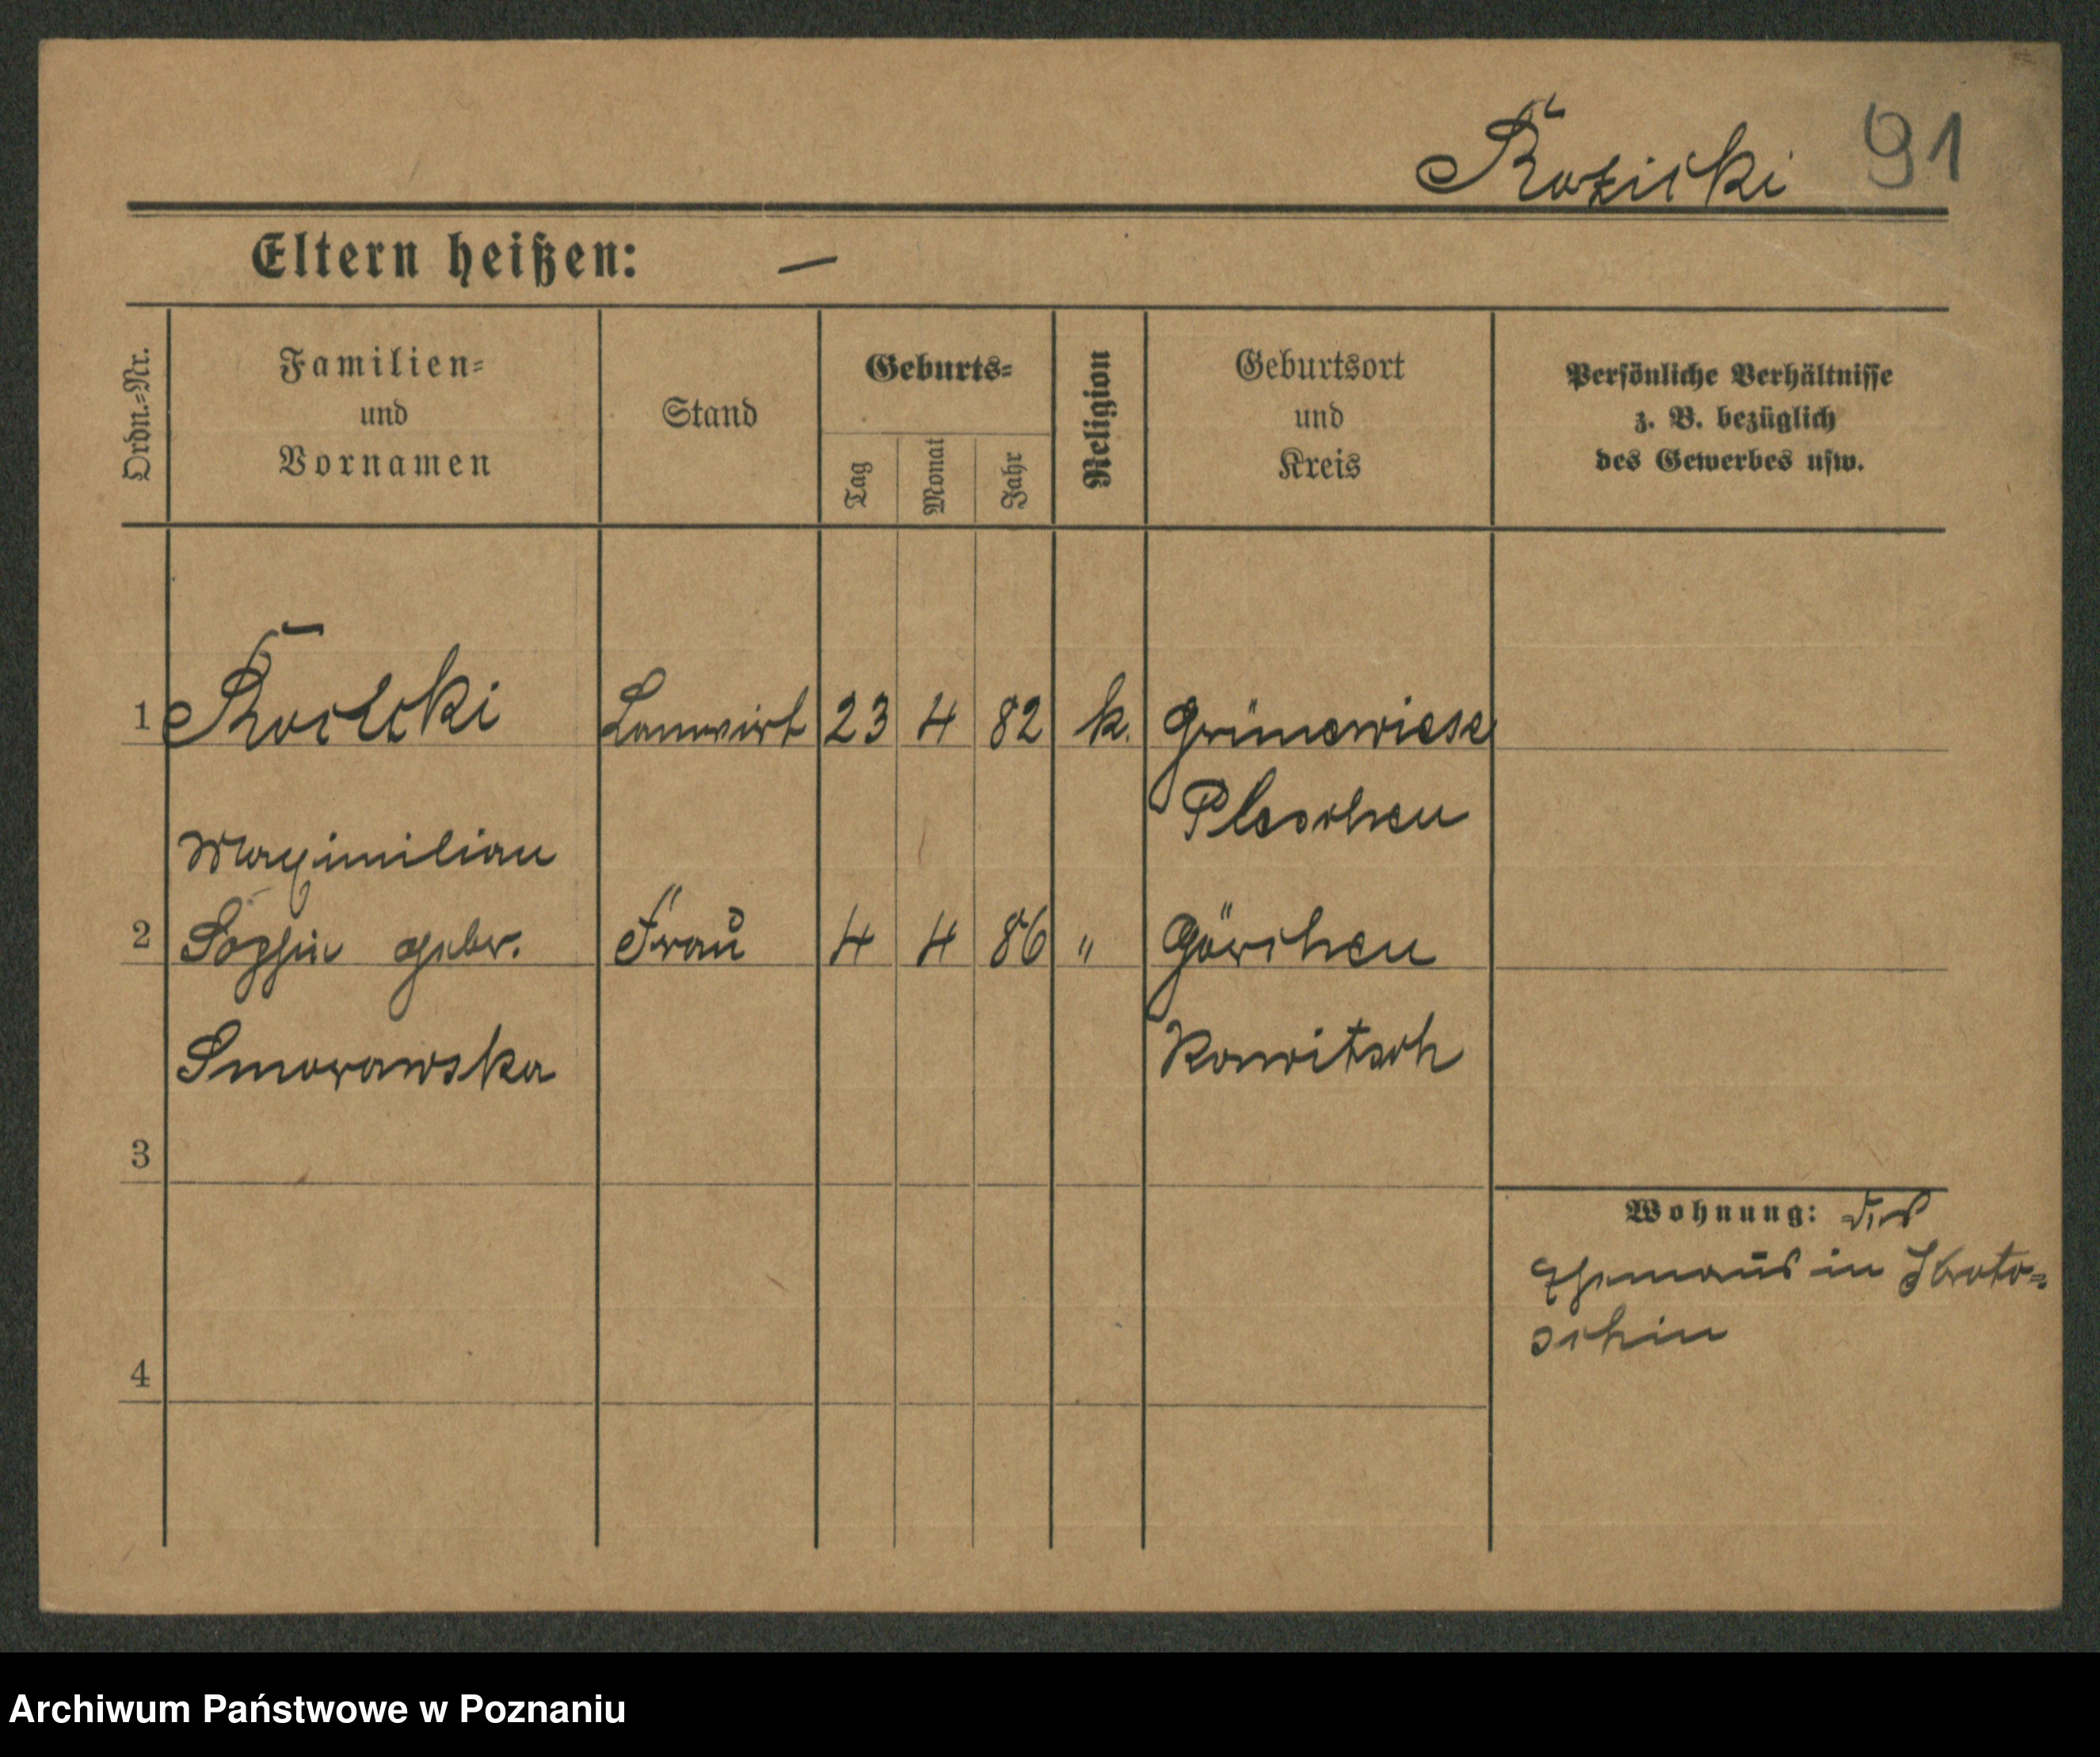 Kozicki 91
Eltern heißen: —
Ordn.-Nr.
Familien-
und
Vornamen
Stand
Geburts-
Tag
Monat
Jahr
Religion
Geburtsort
und
Kreis
Persönliche Verhältnisse
z. B. bezüglich
des Gewerbes usw.
1 Landwirt 23 4 82 k. Grünewiese
Pleschen
Maximilian
2 Sophie gebor. Frau 4 4 86 " Görchen
Smorawska
Rawitsch
3
Wohnung: des
Ehemanns in Kroto-
schin
4
Archiwum Państwowe w Poznaniu